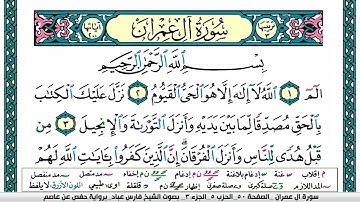 سورة آل عمران
بِسْمِ ٱللَّهِ ٱلرَّحْمَٰنِ ٱلرَّحِيمِ
الٓمٓ ١ ٱللَّهُ لَآ إِلَٰهَ إِلَّا هُوَ ٱلْحَىُّ ٱلْقَيُّومُ ٢ نَزَّلَ عَلَيْكَ ٱلْكِتَٰبَ
بِٱلْحَقِّ مُصَدِّقًا لِّمَا بَيْنَ يَدَيْهِ وَأَنزَلَ ٱلتَّوْرَىٰةَ وَٱلْإِنجِيلَ ٣ مِن
قَبْلُ هُدًى لِّلنَّاسِ وَأَنزَلَ ٱلْفُرْقَانَ إِنَّ ٱلَّذِينَ كَفَرُوا۟ بِـَٔايَٰتِ ٱللَّهِ لَهُمْ
سورة آل عمران - الصفحة ٥٠ - الحزب ٥ - الجزء ٣ - بصوت الشيخ فارس عباد برواية حفص عن عاصم